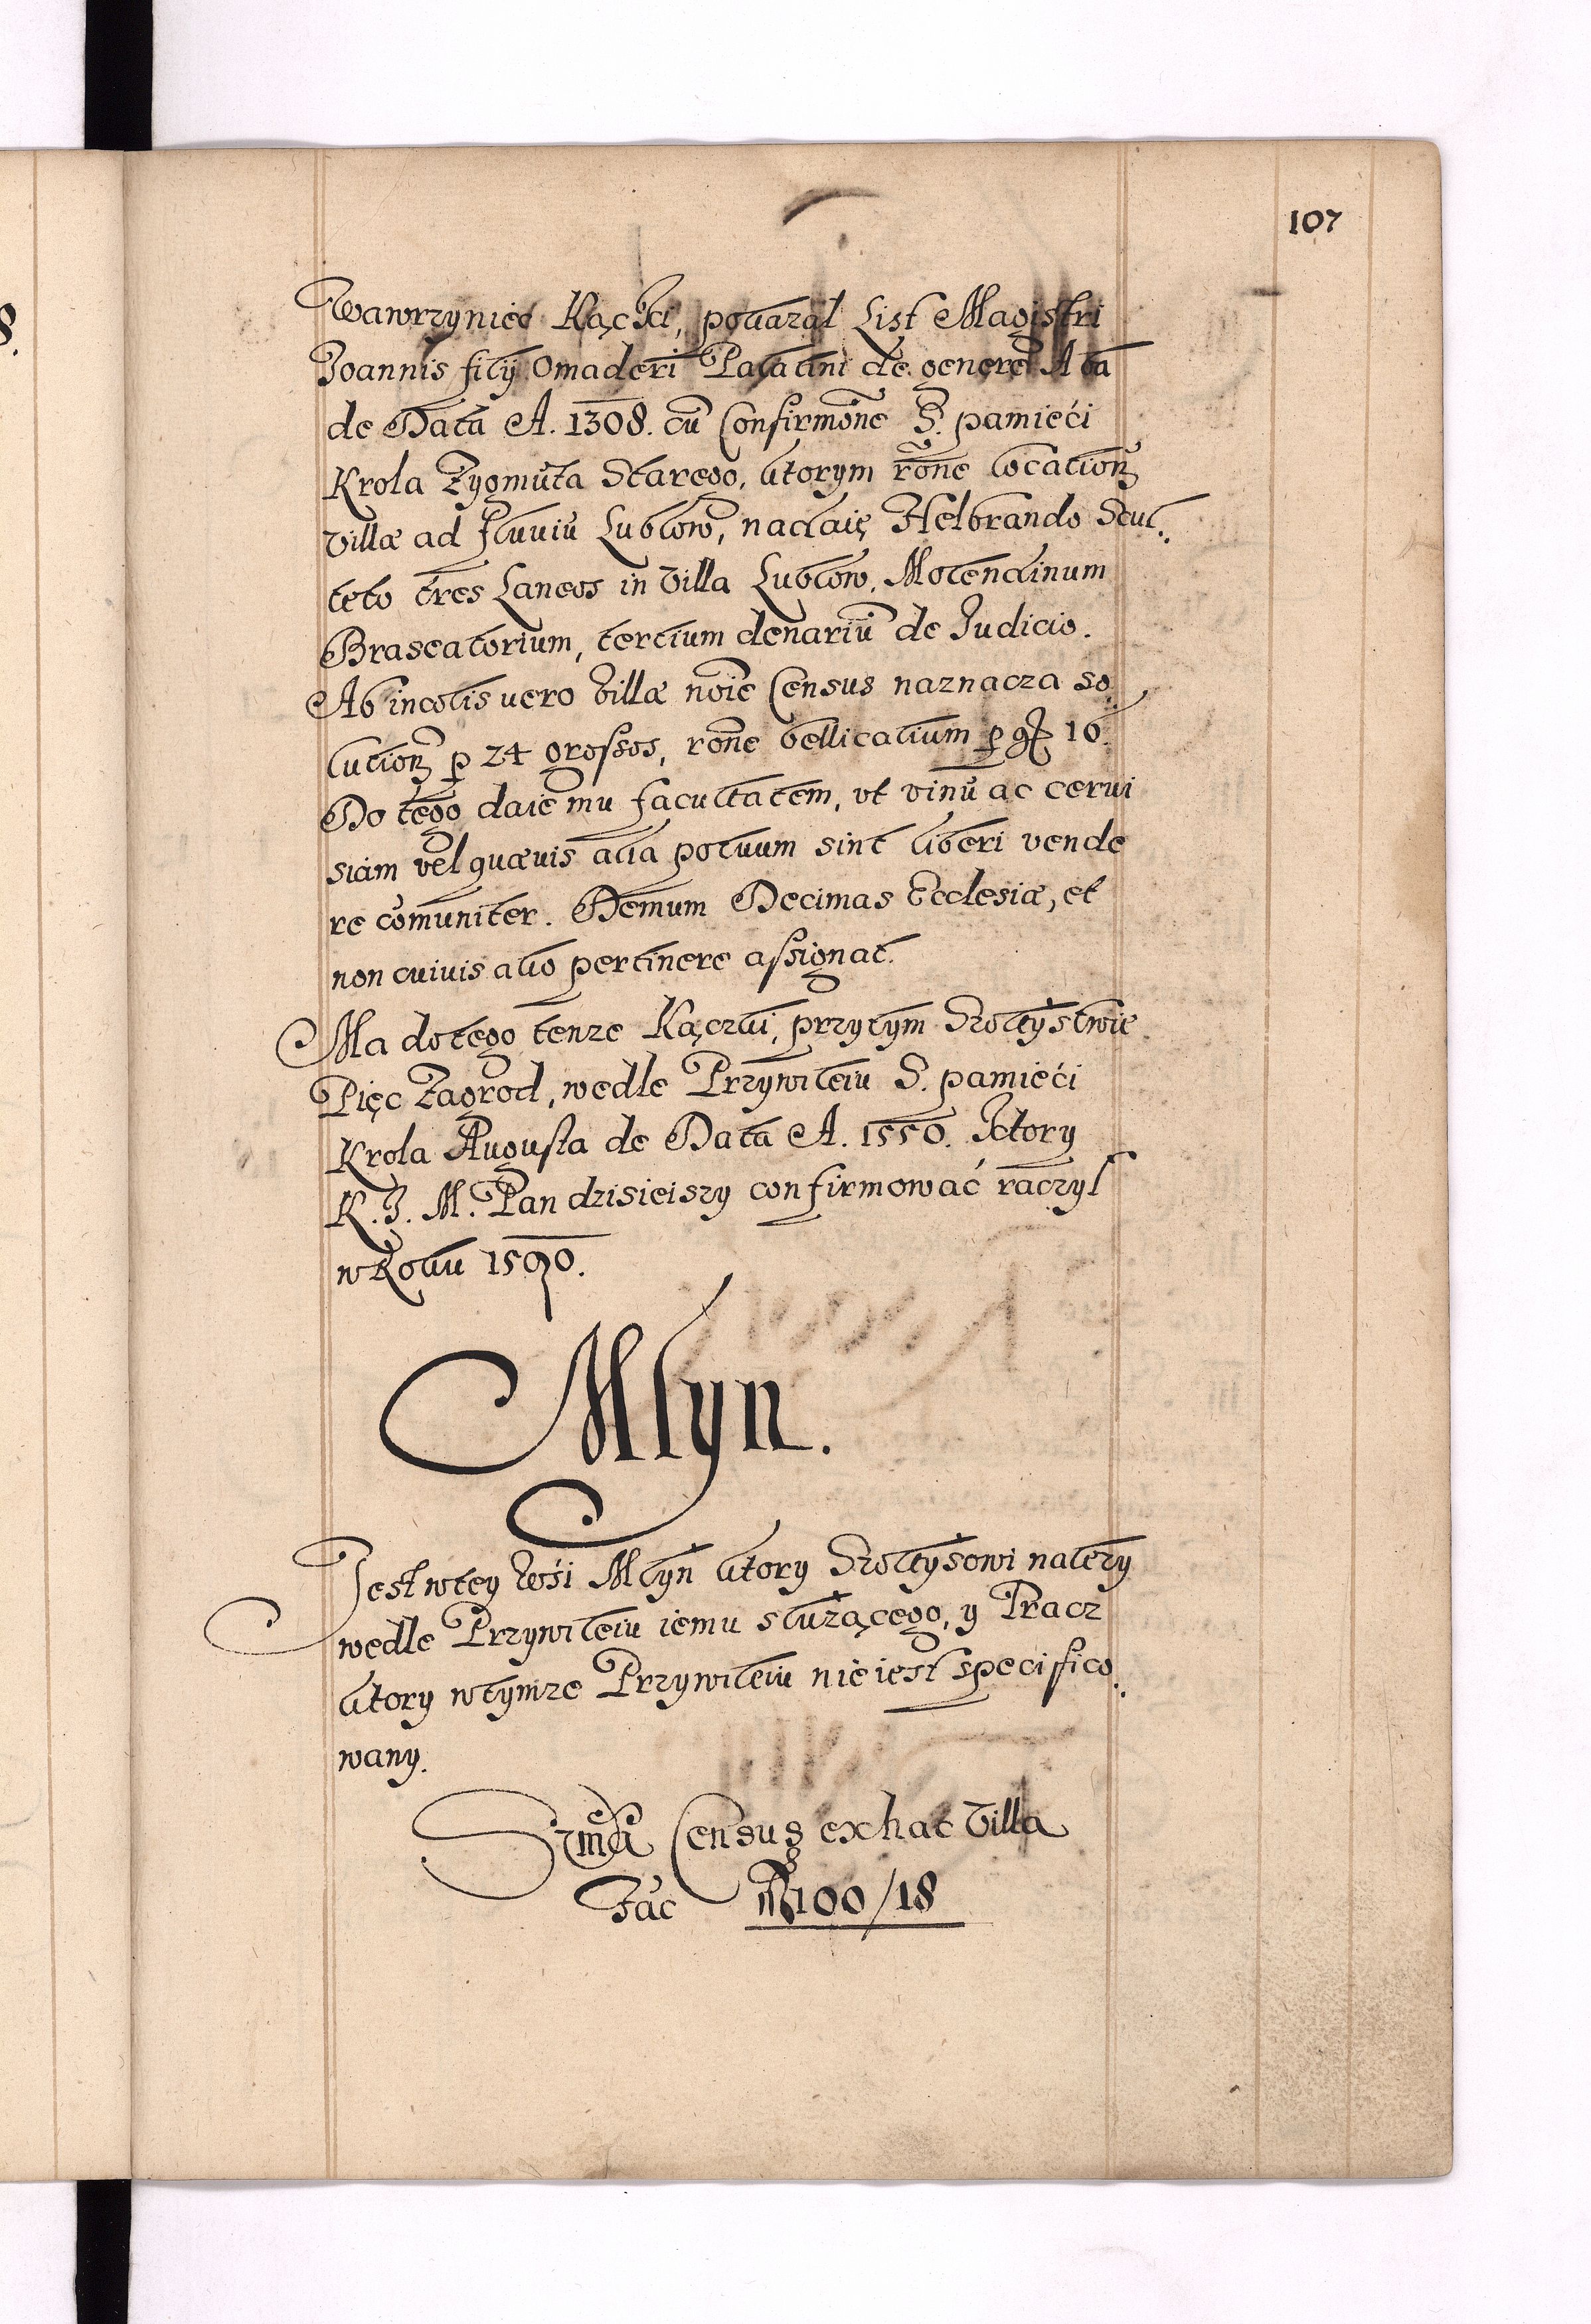 107
Wawrzyniec Kącki, pokazał List Magistri
Joannis filij Omaderi Palatini de genere Aba
de Data A. 1308. cū Confirmōne S. pamieći
Krola Zygmūta Starego, ktorym rōne locationȝ
villæ ad fluuiū Lublow, nadaię Helbrando Scul:
teto tres Laneos in villa Lublow, Molendinum
Braseatorium, tertium denariū de Judicio.
Ab incolis vero villæ noīe Census naznacza so:
lutionȝ p 24 grossos, rōne bellicalium p gr 16.
Do tego daie mu facultatem, vt vinū ac cerui
siam vel quævis alia potuum sint liberi vende
re comuniter. Demum Decimas Ecclesiæ, et
non cuiuis alio pertinere assignat.
Ma do tego tenze Kączki, przytym Szołtystwie
Pięc Zagrod, wedle Przywileiu S. pamieći
Krola Augusta de Data A. 1550. Ktory
K. J. M. Pan dzisieiszy confirmować raczył
w Roku 1590.
Młyn.
Jest wtey Wśi Młyn ktory Szołtysowi nalezy
wedle Przywileiu iemu służącego, y Tracz
ktory wtymze Przywileiu nie iest specifico:
wany.
Suma Census ex hac Villa
Fac 100/18